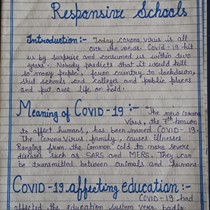 Responsive Schools
Introduction :- Today corona virus is all
over the news. Covid-19 hit
us by surprise and consumed us within two
years. Nobody predicts that it would kill
so many people, force country to lockdown,
shut schools and colleges and public places
and put our life on hold.
Meaning of COVID-19 :- The new corona
virus, the 7th known
to affect humans, has been named COVID-19.
Coronavirus family, causes illnesses
Ranging from the common cold to more severe
diseases such as SARS and MERS. They can
be transmitted between animals and humans.
COVID-19 Affecting Education :-
COVID-19 had
affected the education system very badly